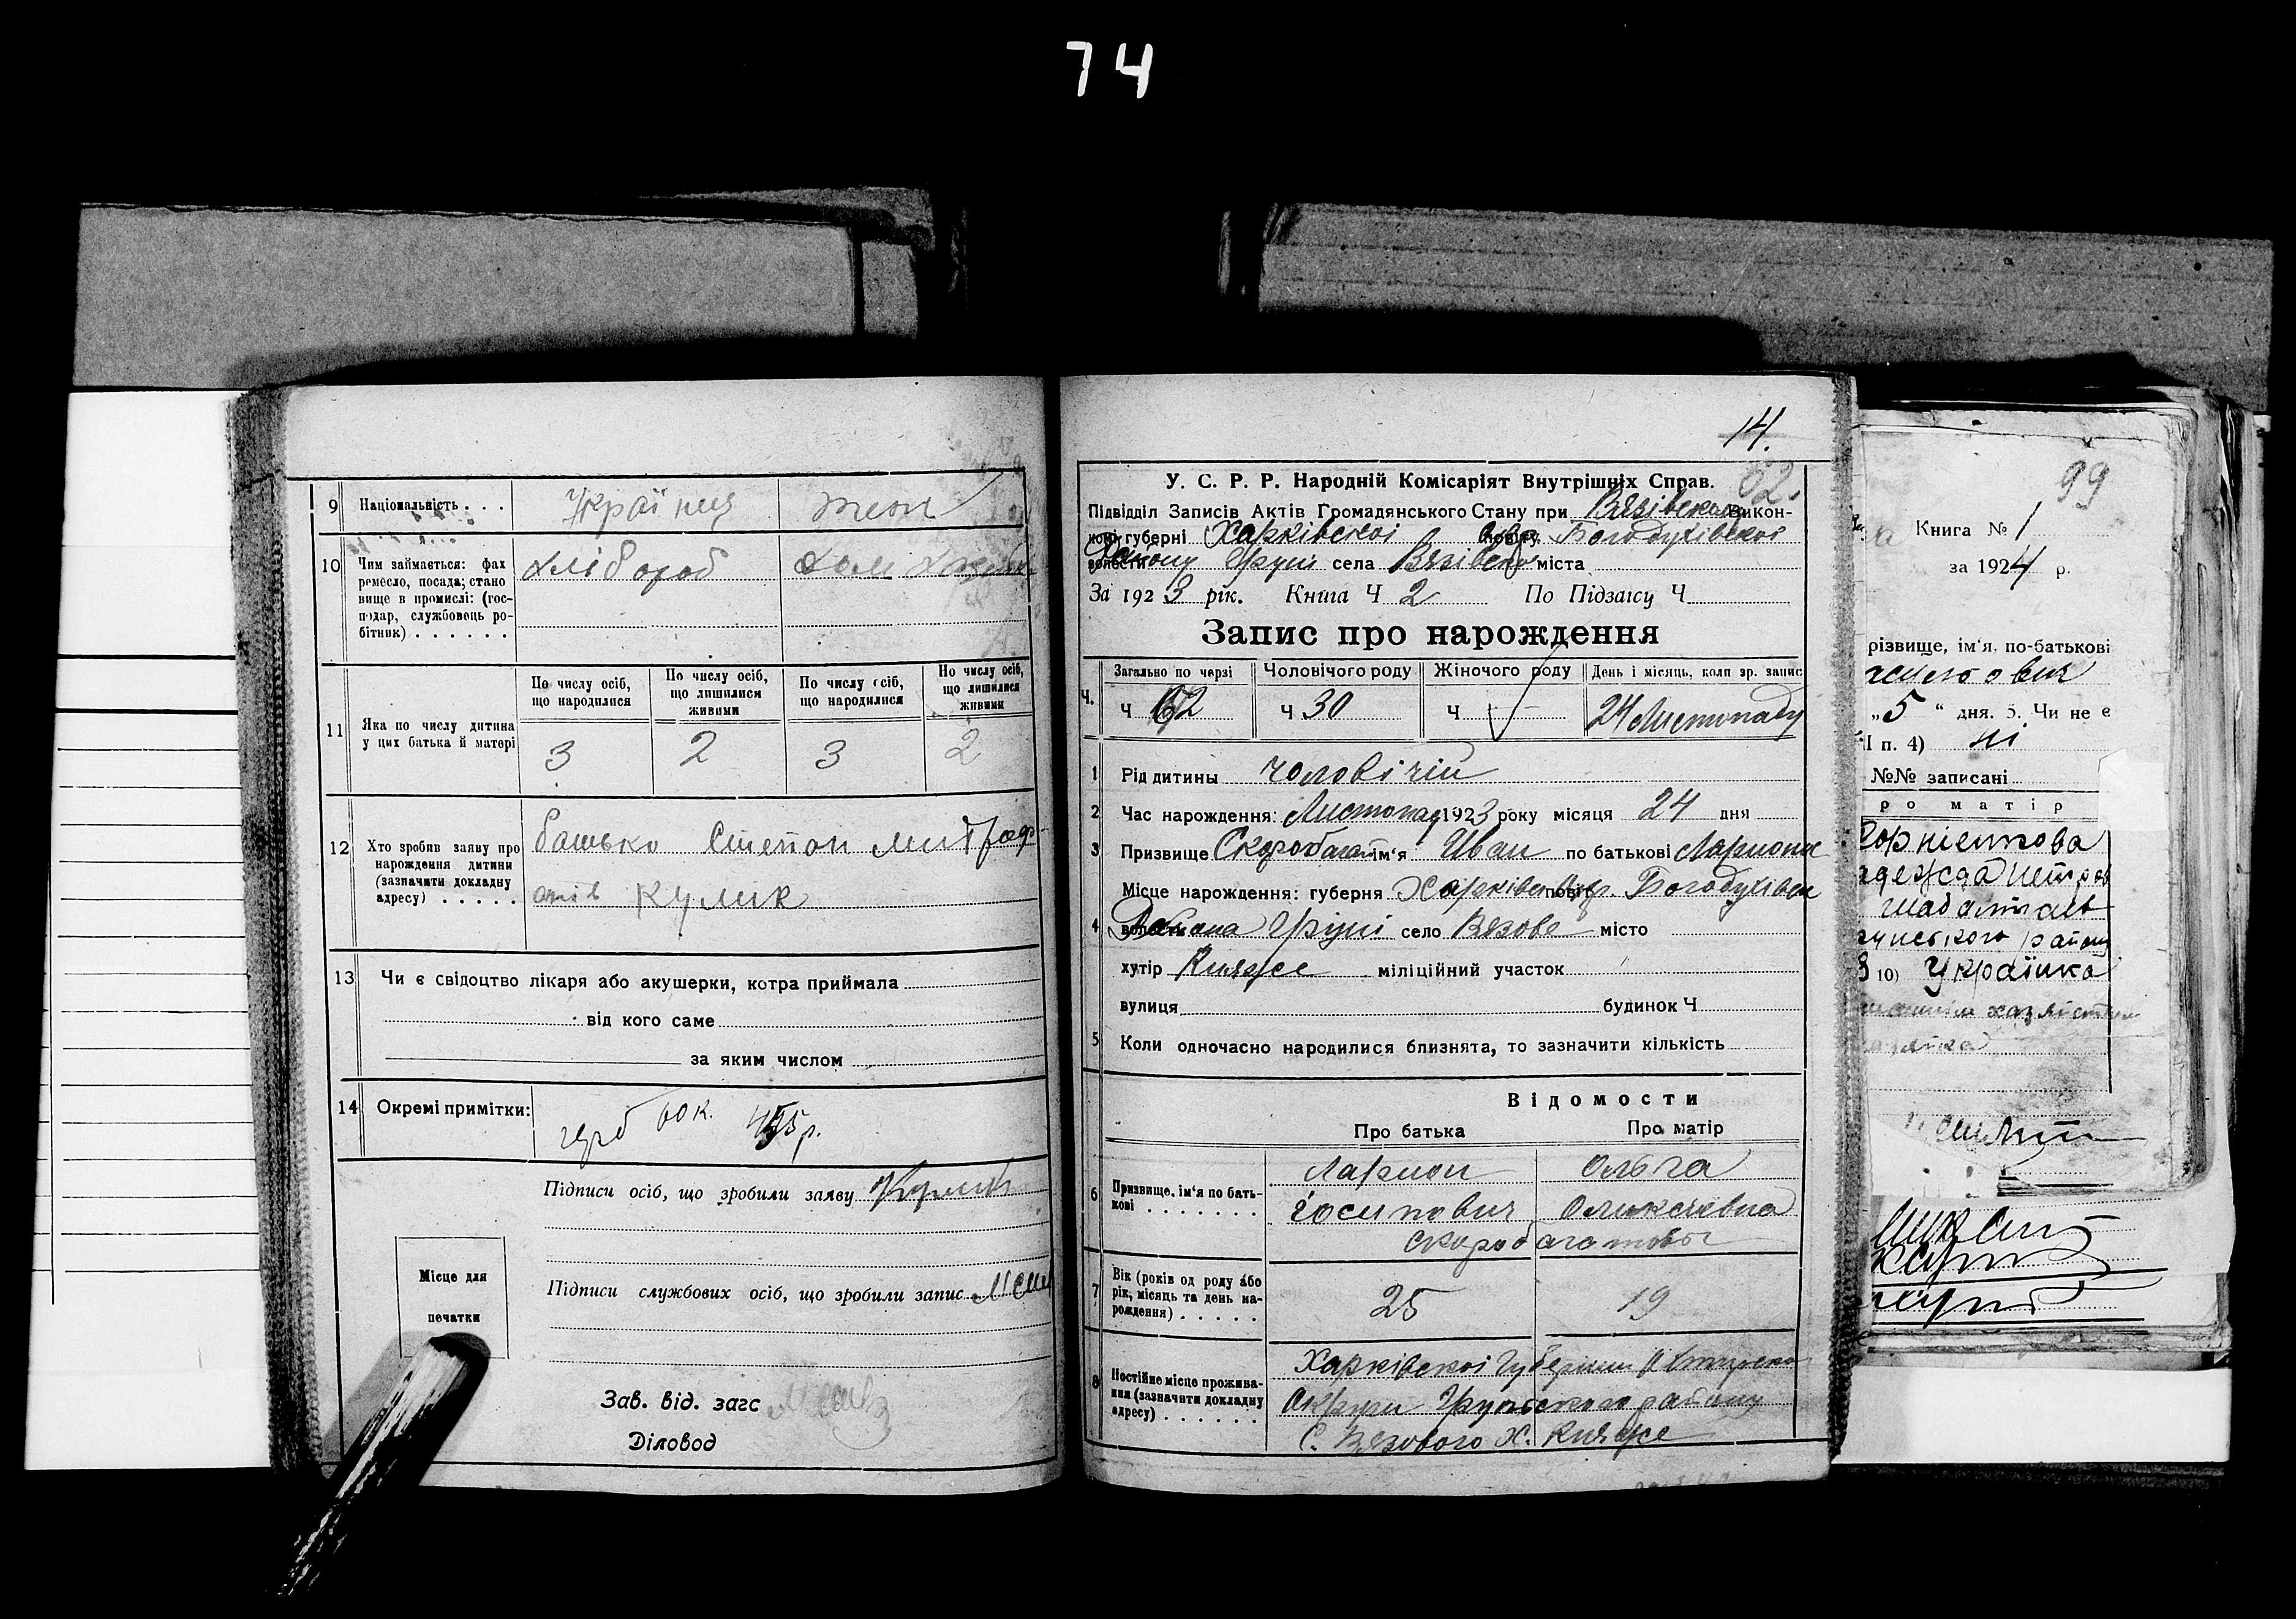 74
9 Національність . . . Українця тож
10 Чим займається: фах
ремесло, посада; стано
вище в промислі: (гос-
подар, службовець ро-
бітник) . . . . . .
хлібороб
11 Яка по числу дитина
у цих батька й матері
По числу осіб,
що народилися
По числу осіб,
що лишилися
живими
По числу осіб,
що народилися
Но числу осіб,
що лишилися
живими
3 2 3 2
12 Хто зробив заяву про
нарождення дитини
(зазначити докладну
адресу) . . . . .
батько Степан Митроф-
анів Кулик
13 Чи є свідоцтво лікаря або акушерки, котра приймала
від кого саме
за яким числом
14 Окремі примітки:
герб 60 к.
Підписи осіб, що зробили заяву Кулик
Місце для
печатки
Підписи службових осіб, що зробили запис
Зав. від. загс
Діловод
14.
62.
У. С. Р. Р. Народній Комісаріят Внутрішніх Справ.
Підвідділ Записів Актів Громадянського Стану при Вязівском Викон-
комі губерні Харківскоі повіту Богодухівскоі
волости Району Груні села Вязівско міста
За 1923 рік. Книга Ч 2 По Підзагсу Ч
Запис про нарождення
Ч.
Загально по черзі
Чоловічого роду
Жіночого роду
День і місяць, коли зр. запис
Ч 62
Ч 30
Ч —
24 Листопаду
1 Рід дитины чоловічій
2 Час нарождення: Листопад 1923 року місяця 24 дня
3 Призвище Скоробагат ім'я Иван по батькові Ларионов
4 Місце нарождення: губерня Харківск повіт Богодухівск
волость Району Гріуні село Вязове місто
хутір Княже міліційний участок
вулиця будинок Ч
5 Коли одночасно народилися близнята, то зазначити кількість
Відомости
Про батька Про матір
6 Призвище, ім'я по бать-
кові . . . . . . .
Ларион
Іосипович
Ольга
Олексієвна
Скоробагатовы
7 Вік (років од роду або
рік, місяць та день на-
рождення) . . . . .
25 19
8 Постійне місце прожива-
ння (зазначити докладну
адресу) . . . . . .
Харківскоі Губерніи
Округи Грунского району
С. Вязового Х. Княже
99
Книга № 1
за 1924 р.
різвище, ім'я, по-батькові
„5“ дня. 5. Чи не є
II п. 4) ні
№№ записані
ро матір
10) Українка